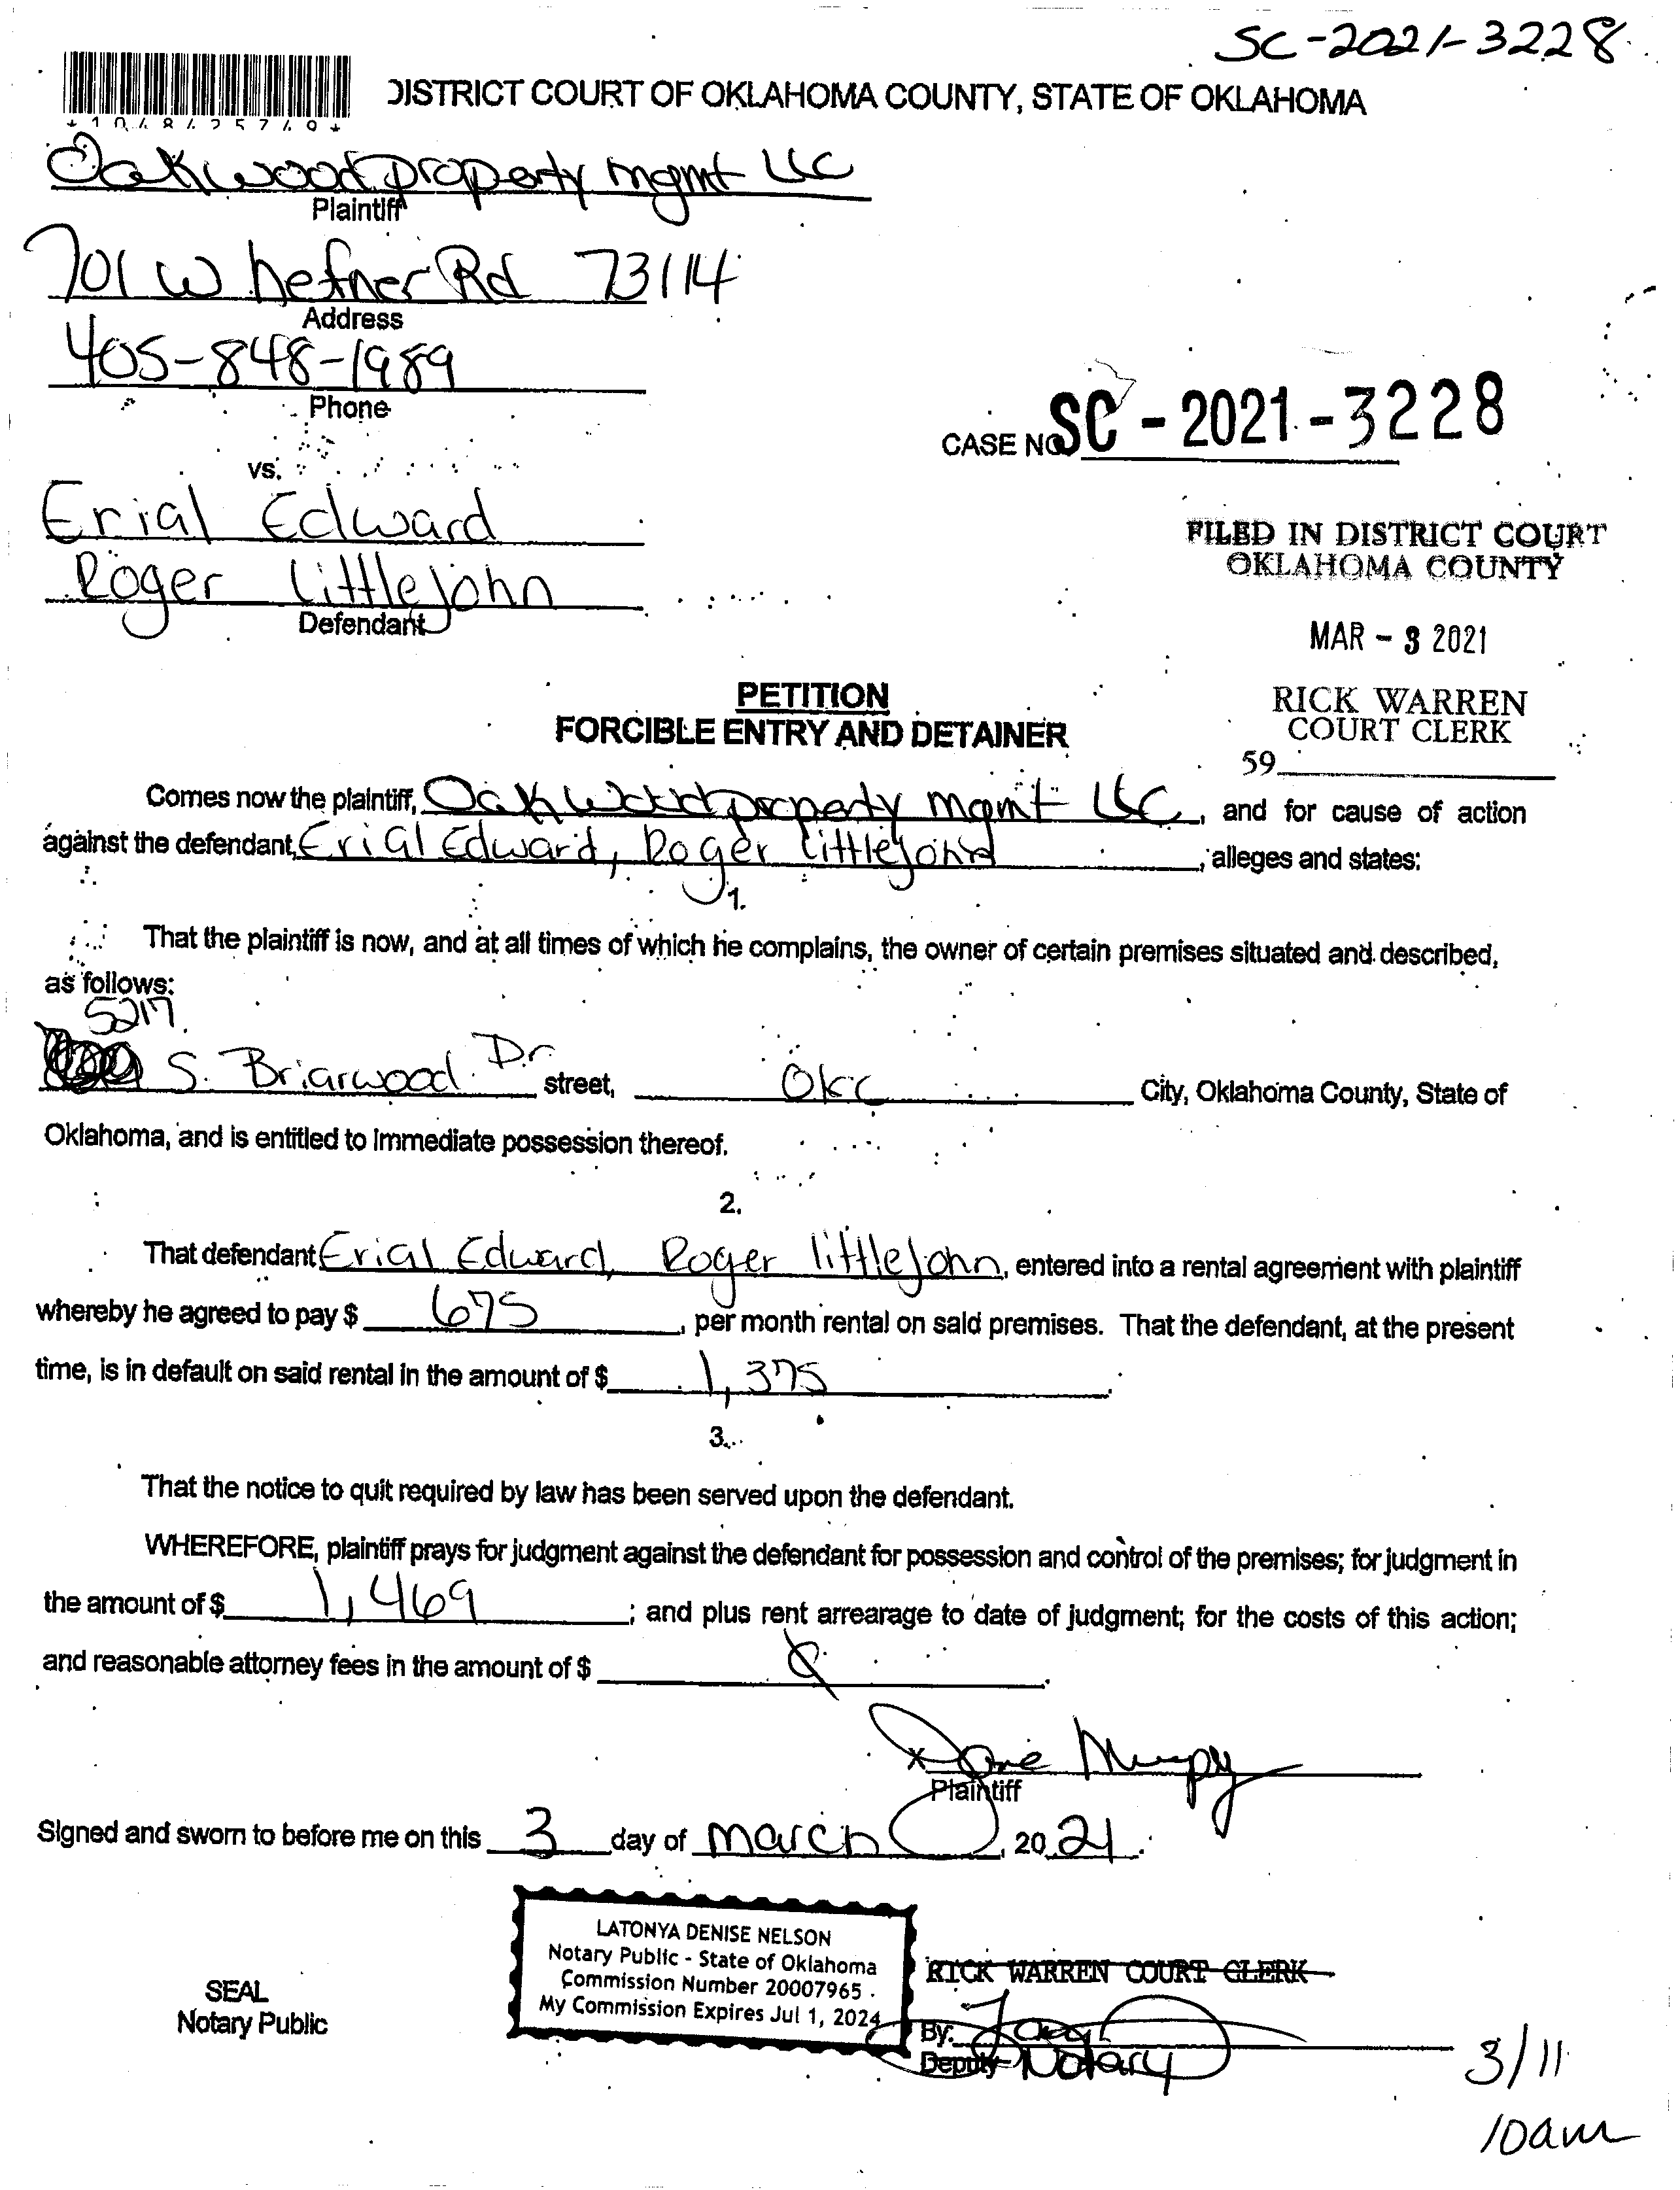 SC-2021-3228
*1048425749*
DISTRICT COURT OF OKLAHOMA COUNTY, STATE OF OKLAHOMA
Oakwood property mgmt LLC
Plaintiff
701 W hefner Rd 73114
Address
405-848-1989
Phone
CASE NO. SC - 2021 - 3228
vs.
Erial Edward
Roger Littlejohn
Defendant
FILED IN DISTRICT COURT
OKLAHOMA COUNTY
MAR - 3 2021
RICK WARREN
COURT CLERK
59
PETITION
FORCIBLE ENTRY AND DETAINER
Comes now the plaintiff, Oakwood property mgmt LLC, and for cause of action
against the defendant, Erial Edward, Roger Littlejohn, alleges and states:
1.
That the plaintiff is now, and at all times of which he complains, the owner of certain premises situated and described,
as follows:
5217
S. Briarwood Dr. street, OKC City, Oklahoma County, State of
Oklahoma, and is entitled to immediate possession thereof.
2.
That defendant Erial Edward, Roger littlejohn, entered into a rental agreement with plaintiff
whereby he agreed to pay $ 675, per month rental on said premises. That the defendant, at the present
time, is in default on said rental in the amount of $ 1,375.
3.
That the notice to quit required by law has been served upon the defendant.
WHEREFORE, plaintiff prays for judgment against the defendant for possession and control of the premises; for judgment in
the amount of $ 1,469; and plus rent arrearage to date of judgment; for the costs of this action;
and reasonable attorney fees in the amount of $
x
Plaintiff
Signed and sworn to before me on this 3 day of march, 2021.
LATONYA DENISE NELSON
Notary Public - State of Oklahoma
Commission Number 20007965
My Commission Expires Jul 1, 2024
SEAL
Notary Public
RICK WARREN COURT CLERK
By:
Deputy Notary
3/11
10am